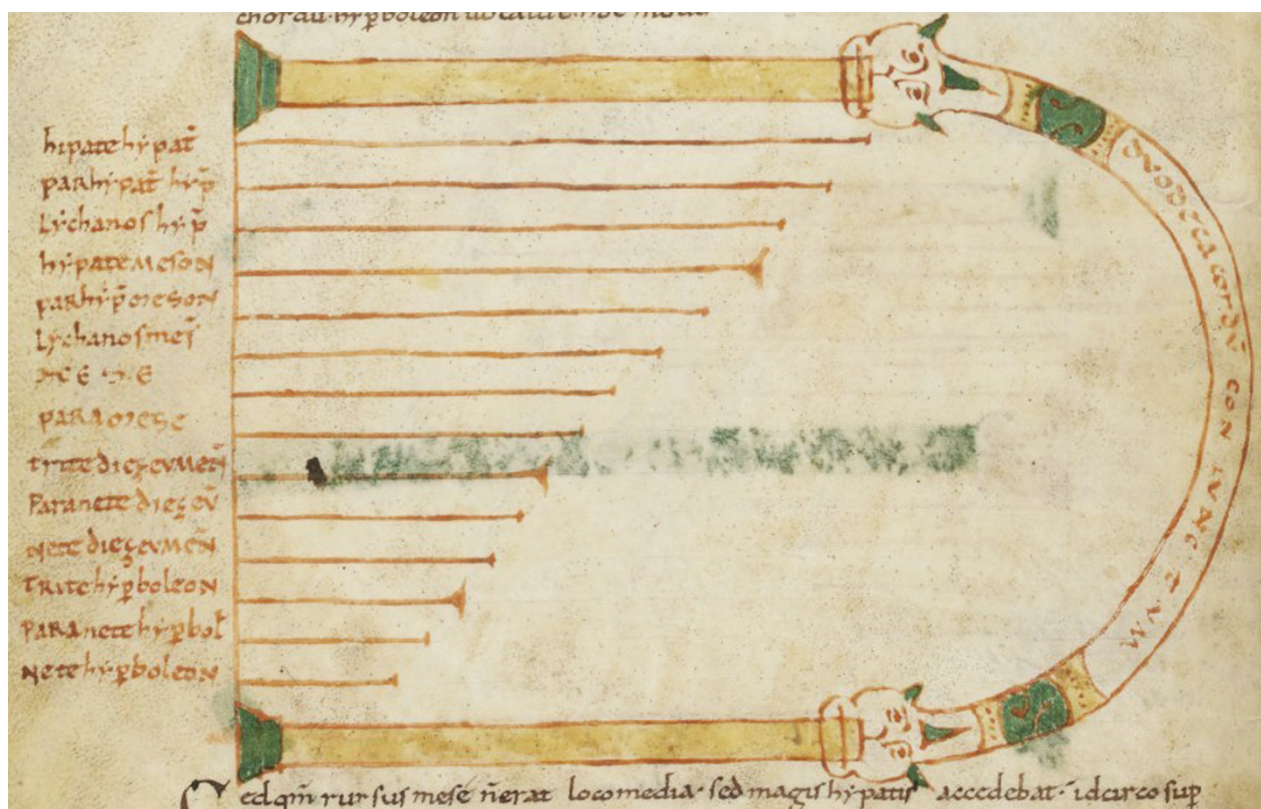 chordaū·hyp̄boleon uocatur hoc modo
hipate hypat̄
parhypat̄ hyp̄
Lychanos hyp̄
hypate meson
parhyp̄ meson
Lychanos mes̄
mese
paramese
trite diezeumen̄
Paranete diezeū
nete diezeumen̄
trite hyp̄boleon
paranete hyp̄bol̄
nete hyp̄boleon
coniunctum
Sed qm̄ rursus mese n̄ erat loco media· sed magis hypatis accedebat· idcirco sup